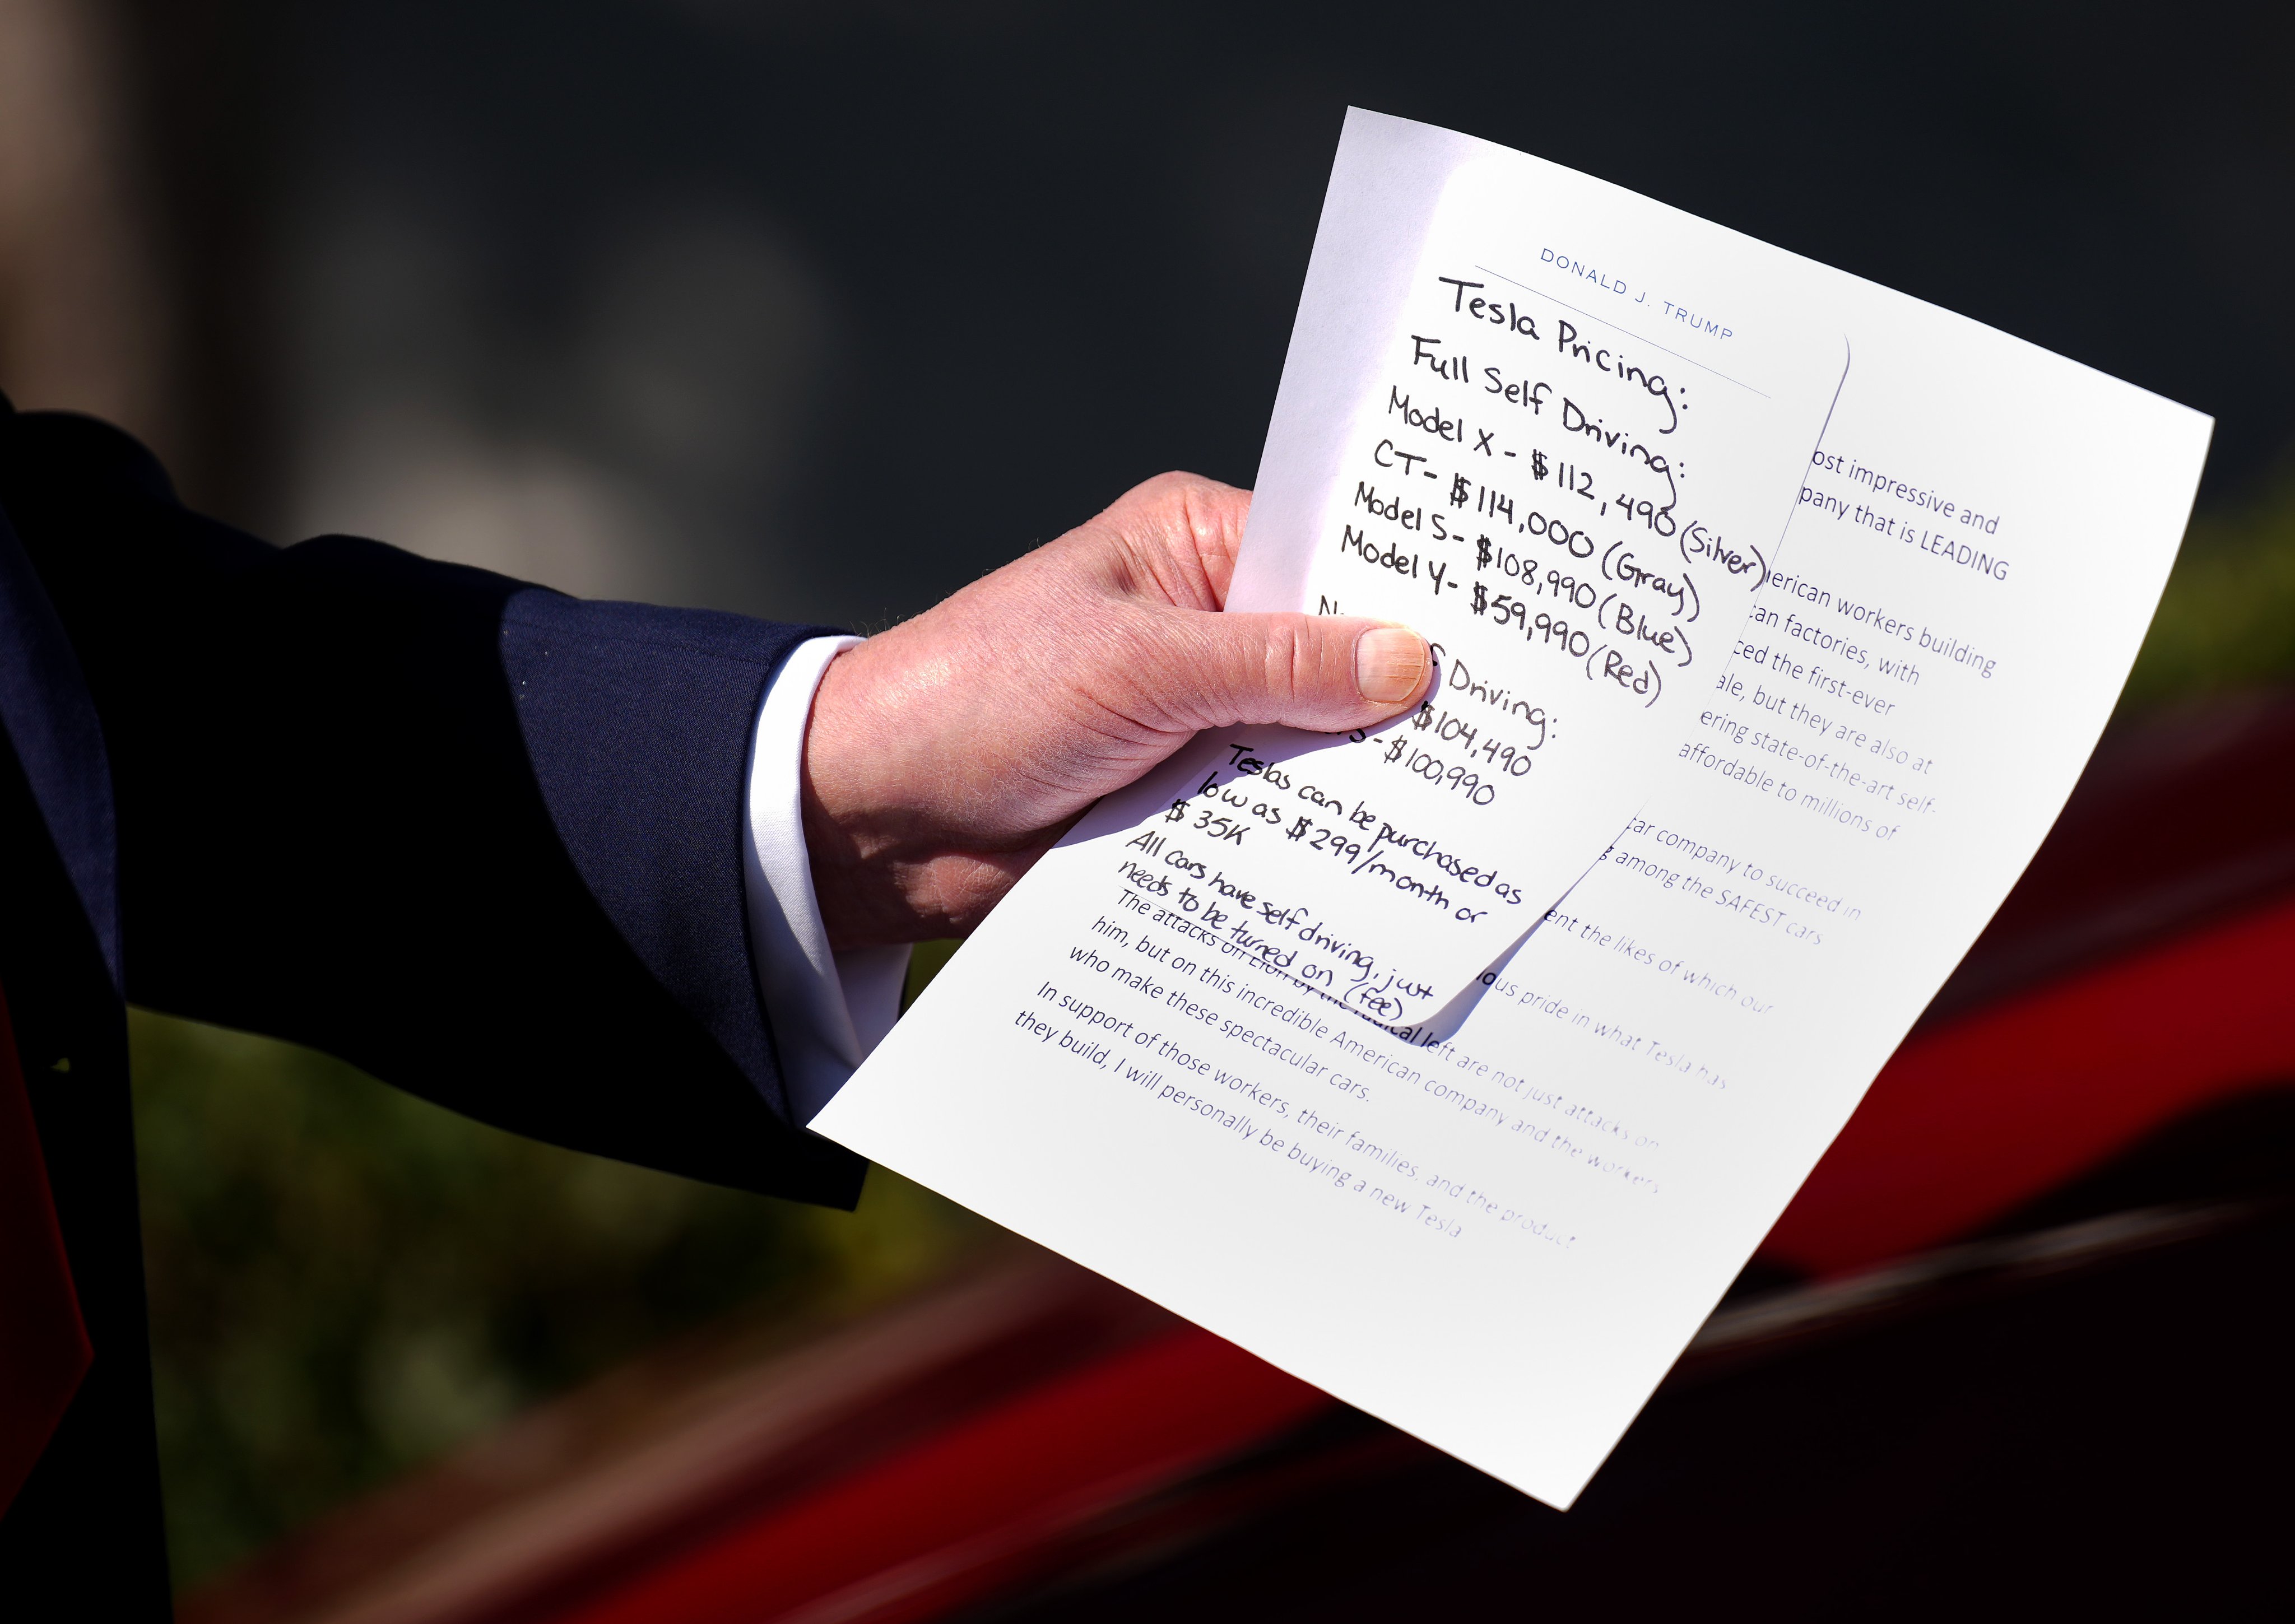 DONALD J. TRUMP
Tesla Pricing:
Full Self Driving:
Model X - $112,490 (Silver)
CT- $114,000 (Gray)
Model S- $108,990 (Blue)
Model Y- $59,990 (Red)
Driving:
$104,490
- $100,990
Teslas can be purchased as
low as $299/month or
$35K
All cars have self driving, just
needs to be turned on (fee)
impressive and
that is LEADING
workers building
factories, with
the first-ever
but they are also at
state-of-the-art self-
affordable to millions of
car company to succeed in
among the SAFEST cars
the likes of which our
pride in what Tesla has
The attacks on Elon by the radical left are not just attacks on
him, but on this incredible American company and the workers
who make these spectacular cars.
In support of those workers, their families, and the product
they build, I will personally be buying a new Tesla